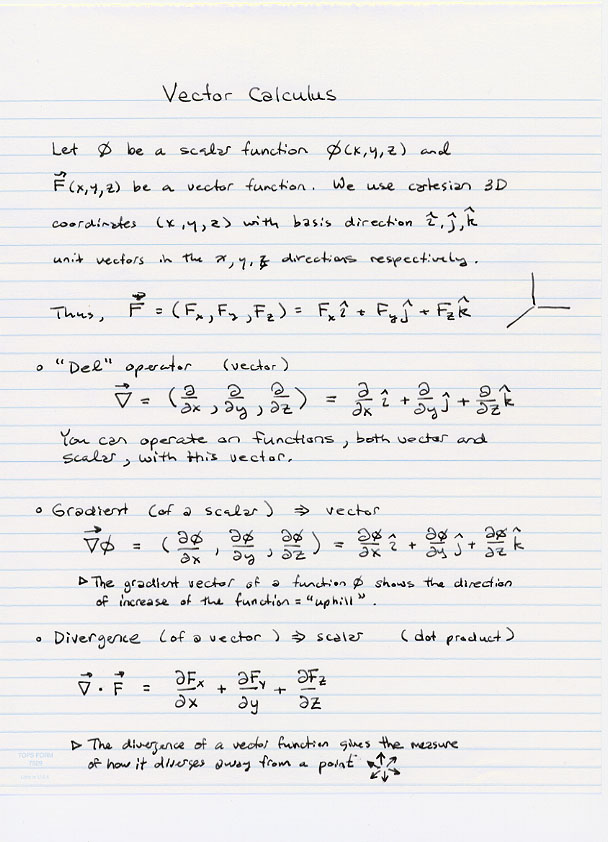 Vector Calculus
Let ϕ be a scalar function ϕ(x,y,z) and
F⃗(x,y,z) be a vector function. We use cartesian 3D
coordinates (x,y,z) with basis direction î, ĵ, k̂
unit vectors in the x, y, z directions respectively.
Thus, F⃗ = (Fx, Fy, Fz) = Fx î + Fy ĵ + Fz k̂
o "Del" operator (vector)
∇⃗ = (∂/∂x, ∂/∂y, ∂/∂z) = ∂/∂x î + ∂/∂y ĵ + ∂/∂z k̂
You can operate on functions, both vector and
scalar, with this vector.
o Gradient (of a scalar) ⇒ vector
∇⃗ϕ = (∂ϕ/∂x, ∂ϕ/∂y, ∂ϕ/∂z) = ∂ϕ/∂x î + ∂ϕ/∂y ĵ + ∂ϕ/∂z k̂
▷ The gradient vector of a function ϕ shows the direction
of increase of the function = "uphill".
o Divergence (of a vector) ⇒ scalar (dot product)
∇⃗ · F⃗ = ∂Fx/∂x + ∂Fy/∂y + ∂Fz/∂z
▷ The divergence of a vector function gives the measure
of how it diverges away from a point
TOPS FORM